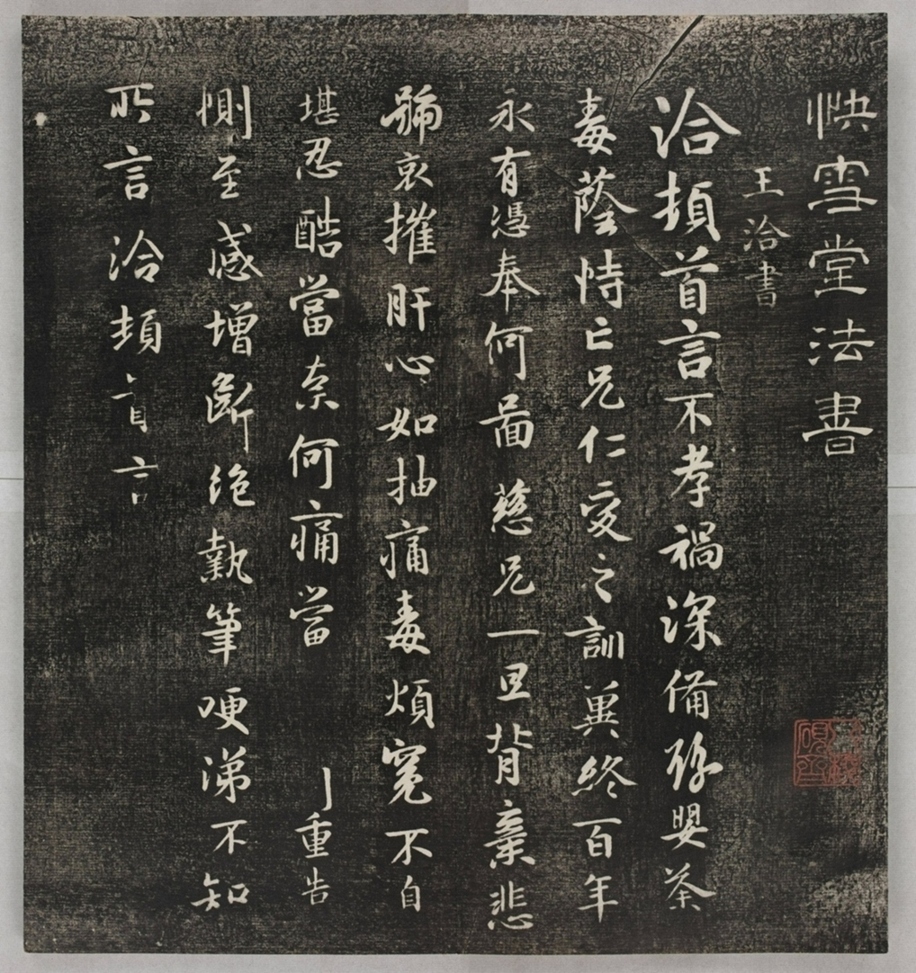 快雪堂法書
王洽書
洽頓首言不孝禍深備殄嬰荼
毒蔭恃亡兄仁愛之訓冀終百年
永有憑奉何啚慈兄一旦背棄悲
號哀摧肝心如抽痛毒煩冤不自
堪忍酷當柰何痛當重告
惻至感增斷絶執筆哽涕不知
所言洽頓首言